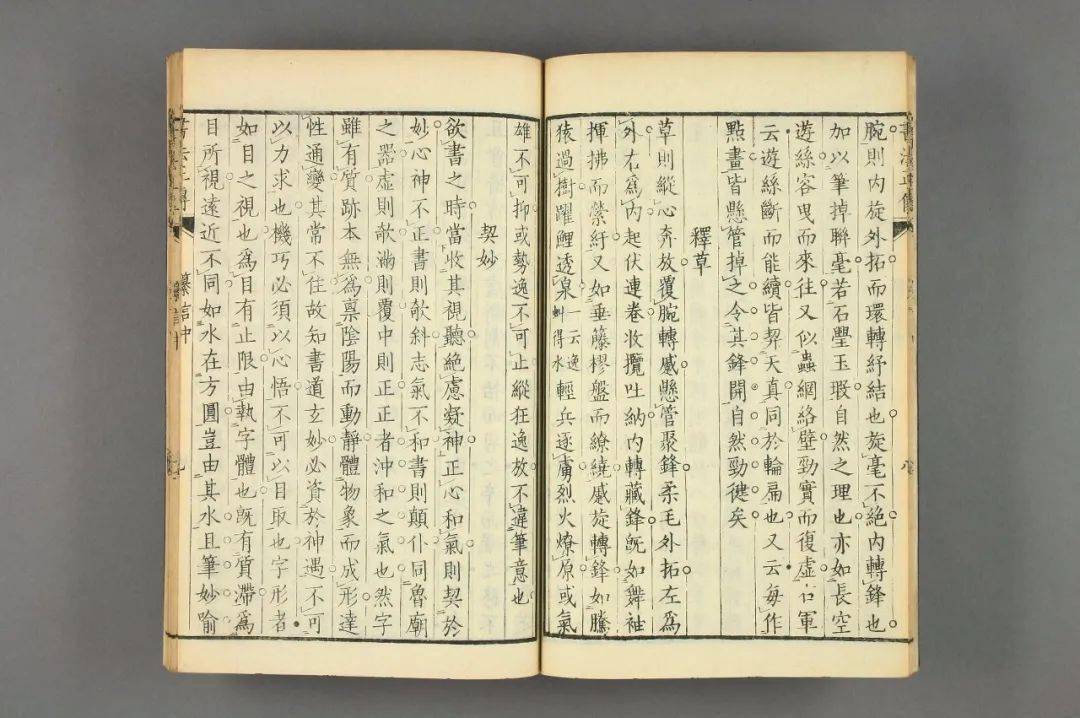 腕則内旋外拓而環轉紓結也旋毫不絕内轉鋒也
加以筆掉聯毫若石璺玉瑕自然之理也亦如長空
遊絲容曳而來往又似蟲網絡壁勁實而復虛右軍
云遊絲斷而能續皆契天真同於輪扁也又云每作
點畫皆懸管掉之令其鋒開自然勁健矣
釋草
草則縱心奔放覆腕轉蹙懸管聚鋒柔毛外拓左爲
外右爲内起伏連卷收攬吐納内轉藏鋒旣如舞袖
揮拂而縈紆又如垂藤樛盤而繚繞蹙旋轉鋒如騰
猿過樹躍鯉透泉一云逸虯得水輕兵逐虜烈火燎原或氣
雄不可抑或勢逸不可止縱狂逸放不違筆意也
契妙
欲書之時當收其視聽絕慮凝神正心和氣則契於
妙心神不正書則欹斜志氣不和書則顛仆同魯廟
之器虛則欹滿則覆中則正正者沖和之氣也然字
雖有質跡本無爲稟陰陽而動靜體物象而成形達
性通變其常不住故知書道玄妙必資於神遇不可
以力求也機巧必須以心悟不可以目取也字形者
如目之視也爲目有止限由執字體也旣有質滯爲
目所視遠近不同如水在方圓豈由其水且筆妙喻
書法正傳
纂言中